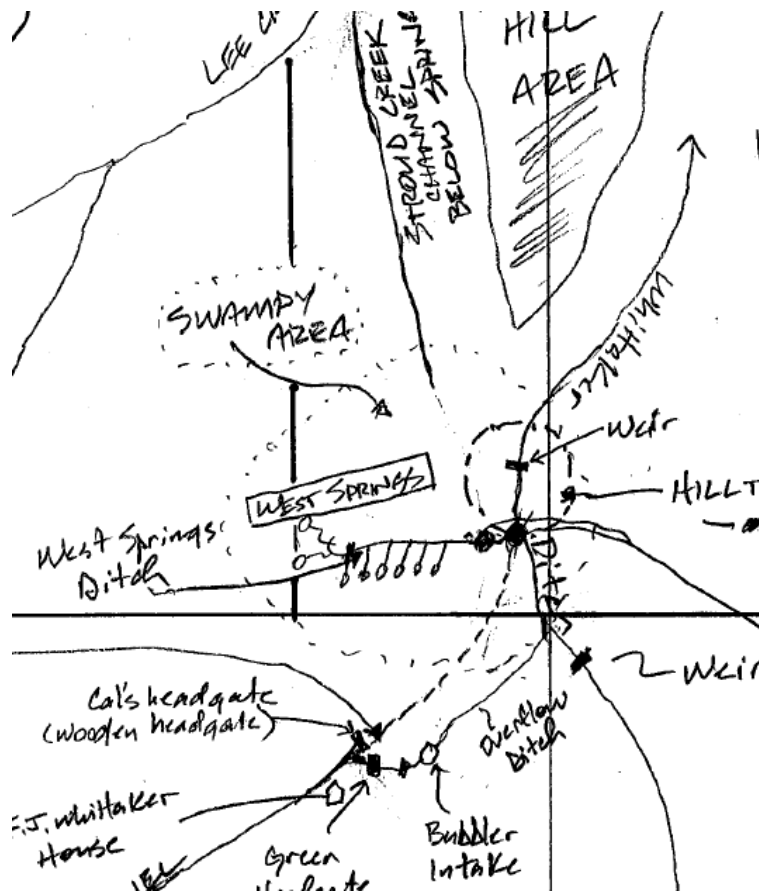 LEE
STROUD CREEK
CHANNEL
BELOW SPRING
HILL
AREA
SWAMPY
AREA
Whittaker
Ditch
Weir
WEST SPRINGS
HILLT
West Springs
Ditch
Weir
Cal's headgate
(wooden headgate)
Overflow
Ditch
F.J. Whittaker
House
Green
Headgate
Bubbler
Intake